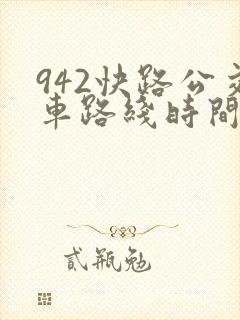 942快路公交
車路綫時間
貳瓶勉